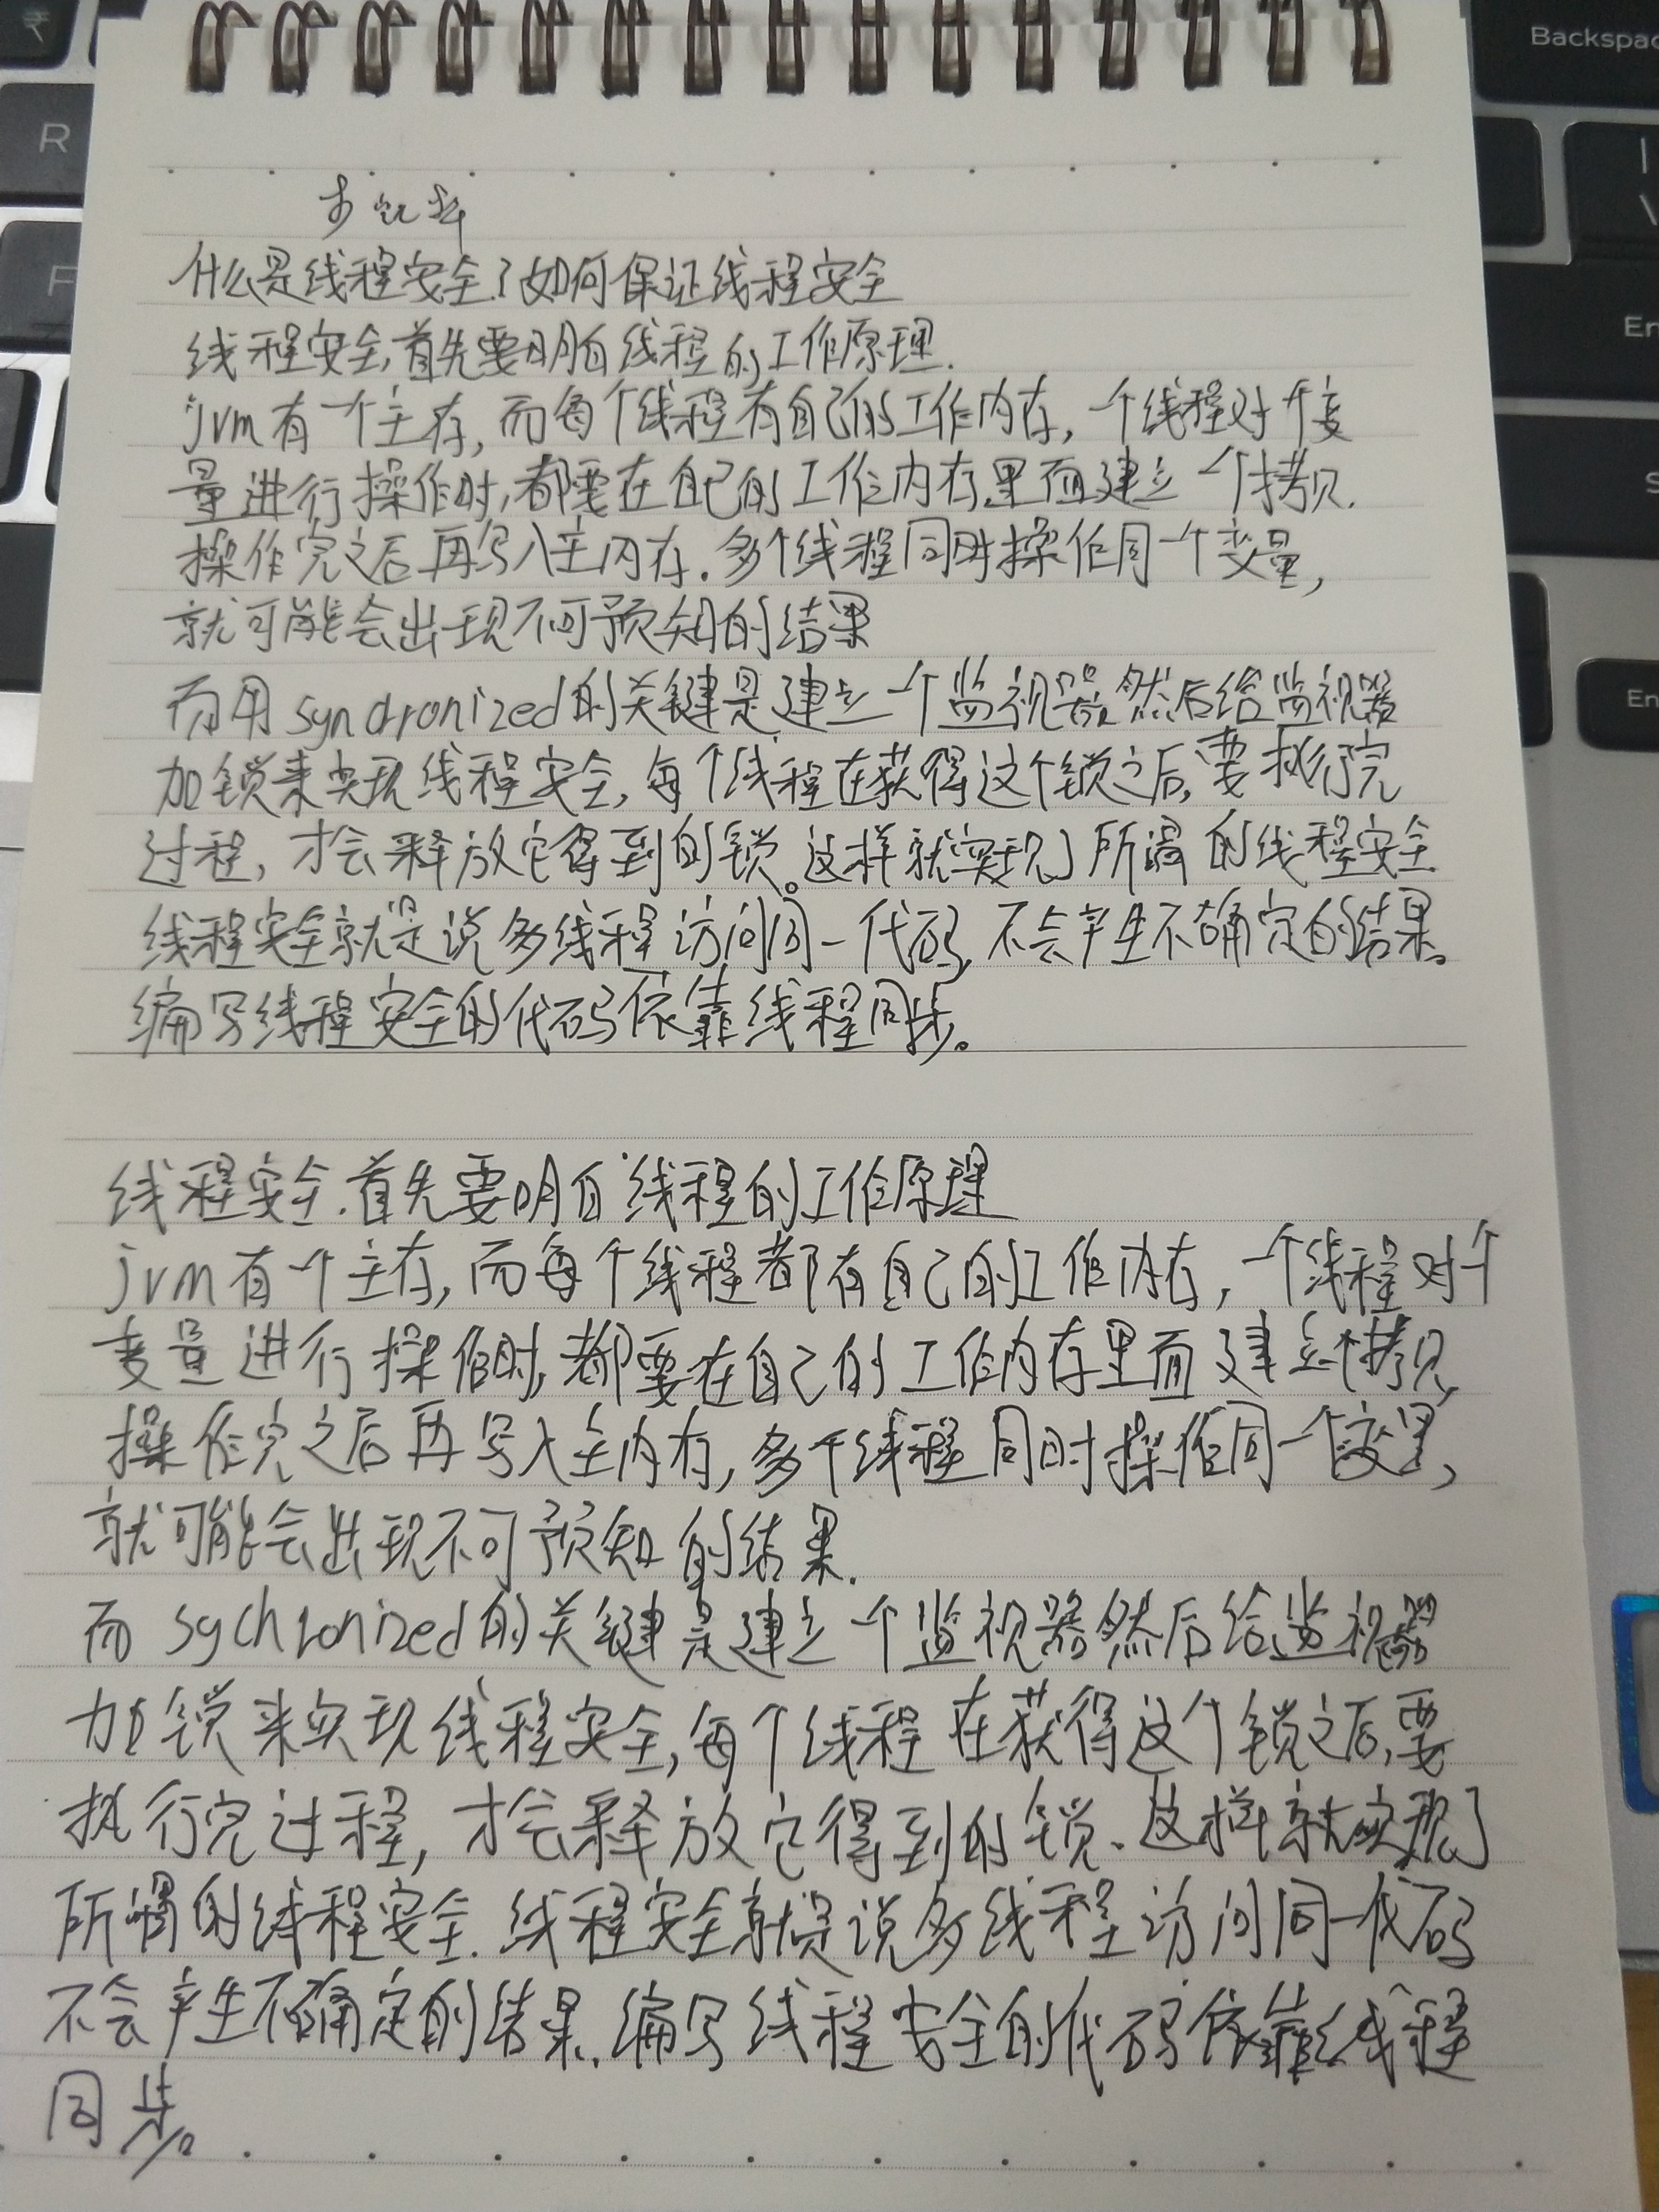 什么是线程安全？如何保证线程安全
线程安全,首先要明白线程的工作原理.
jvm有一个主存,而每个线程有自己的工作内存,一个线程对个变
量进行操作时,都要在自己的工作内存里面建立一个拷贝.
操作完之后再写入主内存.多个线程同时操作同一个变量,
就可能会出现不可预知的结果
而用synchronized的关键是建立一个监视器,然后给监视器
加锁来实现线程安全,每个线程在获得这个锁之后,要执行完
过程,才会释放它得到的锁。这样就实现了所谓的线程安全
线程安全就是说多线程访问同一代码,不会产生不确定的结果。
编写线程安全的代码依靠线程同步。
线程安全.首先要明白线程的工作原理
jvm有一个主存,而每个线程都有自己的工作内存,一个线程对个
变量进行操作时,都要在自己的工作内存里面建立个拷贝,
操作完之后再写入主内存,多个线程同时操作同一个变量,
就可能会出现不可预知的结果.
而sychronized的关键是建立一个监视器然后给监视器
加锁来实现线程安全,每个线程在获得这个锁之后,要
执行完过程,才会释放它得到的锁、这样就实现了
所谓的线程安全.线程安全就是说多线程访问同一代码
不会产生不确定的结果.编写线程安全的代码依靠线程
同步。
Backspac
R
F